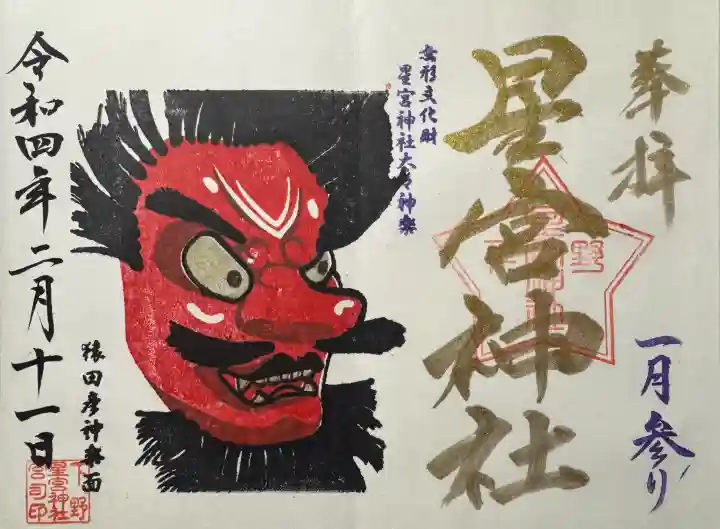 奉拝
一月参り
星宮神社
無形文化財
星宮神社大々神楽
猿田彦神楽面
令和四年二月十一日
下野
星宮神社
宮司印